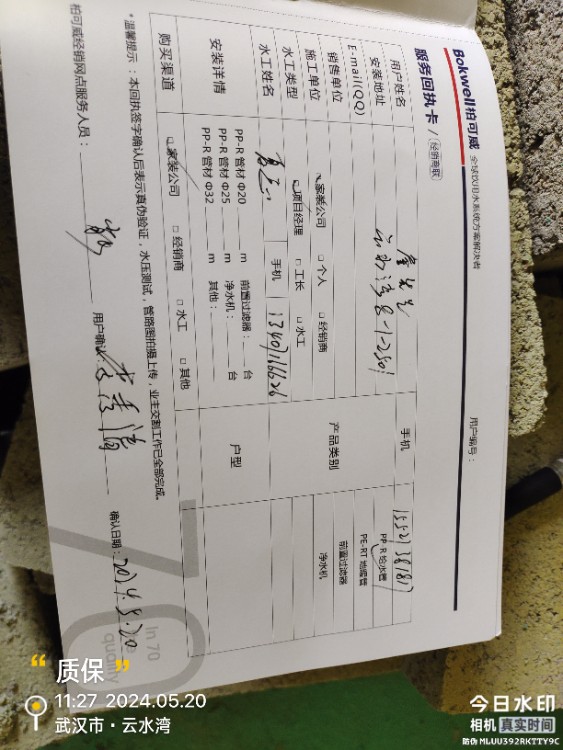 Bokwell柏可威 全球饮用水系统方案解决者
服务回执卡 / 经销商联
用户编号：
用户姓名
手机
安装地址 云水湾8-1-2501
E-mail(QQ)
产品类别
PP-R 给水管
PE-RT 地暖管
前置过滤器
净水机
销售单位
□家装公司 □个人 □经销商
施工单位
水工类型 □项目经理 □工长 □水工
水工姓名
手机 13407166626
安装详情
PP-R 管材 Φ20 m 前置过滤器： 台
PP-R 管材 Φ25 m 净水机： 台
PP-R 管材 Φ32 m 其他：
户型
购买渠道 □家装公司 □经销商 □水工 □其他
*温馨提示：本回执签字确认后表示真伪验证，水压测试，管路图拍摄上传，业主交割工作已全部完成。
柏可威经销网点服务人员：
用户确认：
确认日期：2024.5.20
70
In 70
quality
“质保”
11:27 2024.05.20
武汉市·云水湾
今日水印
相机 真实时间
防伪 MLUU392RKTTY9C